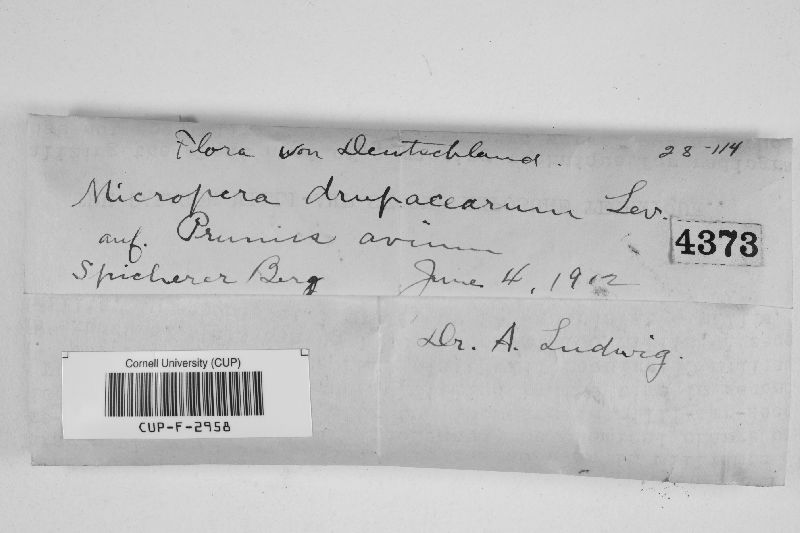 Flora von Deutschland. 28-114
Micropera drupacearum Lev.
auf. Prunus avium
4373
Spicherer Berg June 4, 1912
Dr. A. Ludwig.
Cornell University (CUP)
CUP-F-2958